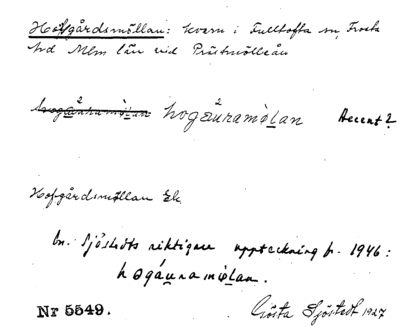 Hofgårdsmöllan: kvarn i Fulltofta sn, Frosta
hd Mlm län vid Prästmölleån
hogäu̯ramø̀lan hogäu̯ramø̀lan Accent?
Hofgårdsmöllan Ek.
Sjöstedts riktigare uppteckning fr. 1946:
hogáu̯ramø̀lan.
Nr 5549. Gösta Sjöstedt 1927